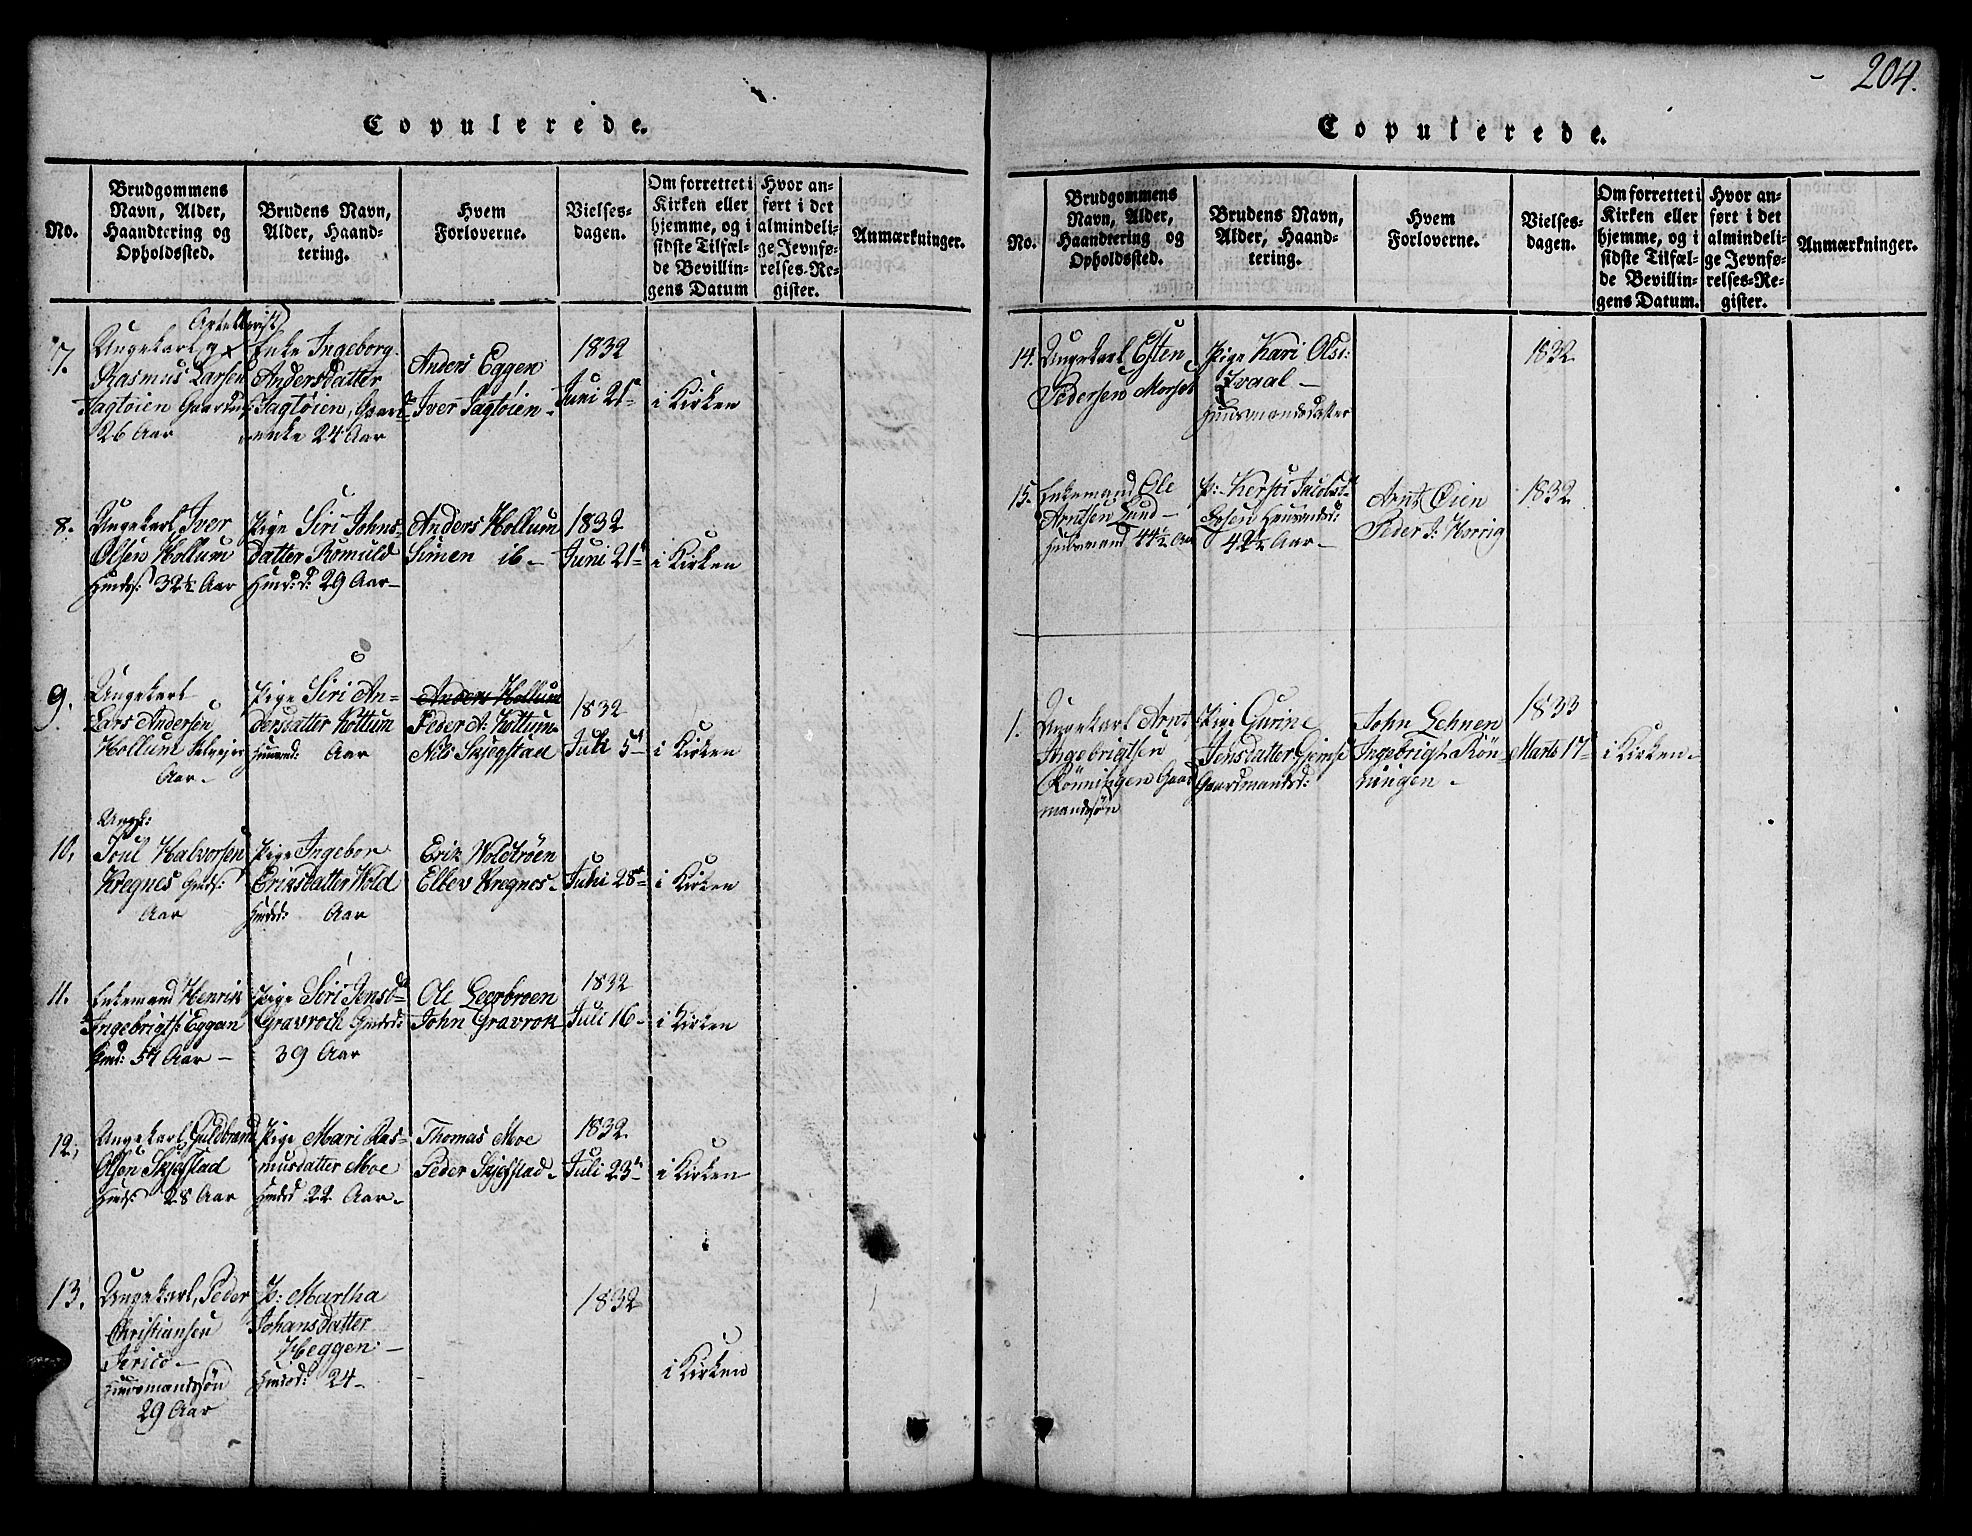 204.
Copulerede.
No.
Brudgommens
Navn, Alder,
Haandtering og
Opholdssted.
Brudens Navn,
Alder, Haand-
tering.
Hvem
Forloverne.
Vielses-
dagen.
Om forrettet i
Kirken eller
hjemme, og i
sidste Tilfæl-
de Bevillin-
gens Datum
Hvor an-
ført i det
almindeli-
ge Jevnfø-
relses-Re-
gister.
Anmærkninger.
7.
Ungekarl
Rasmus Larsen
26 Aar
Enke Ingeborg
Andersdatter
enke 24 Aar
Anders Eggen
Iver
1832
Juni 21
i Kirken
8.
Ungekarl Iver
Olsen Hollum
32½ Aar
Pige Siri Johns-
datter Romuld
29 Aar
Anders Hollum
Simen ib
1832
Juni 21
i Kirken
9.
Ungekarl
Lars Andersen
Hollum
Aar
Pige Siri An-
dersdatter Hollum
Aar
Anders Hollum
Peder A. Hollum
Nils Skjegstad
1832
Juli 5
i Kirken
10.
Ungk:
Joul Halvorsen
Kregnes
Aar
Pige Ingebor
Eriksdatter Wold
Aar
Erik Woldtrøen
Ellev Kregnes
Juni 28
i Kirken
11.
Enkemand Henrik
Ingebrigts: Eggan
57 Aar
Pige Siri Jensd
Gravroch
39 Aar
Ole Leerbroen
John Gravrok
1832
Juli 16
i Kirken
12.
Ungekarl Guldbrand
Olsen Skjefstad
28 Aar
Pige Mari Ras-
musdatter Moe
22 Aar
Thomas Moe
Peder Skjefstad
1832
Juli 23
i Kirken
13.
Ungekarl, Peder
Christiansen
Jerico
Huusmandssøn
29 Aar
P: Martha
Johansdatter
Heggen
24
1832
i Kirken
Copulerede.
No.
Brudgommens
Navn, Alder,
Haandtering og
Opholdssted.
Brudens Navn,
Alder, Haand-
tering.
Hvem
Forloverne.
Vielses-
dagen.
Om forrettet i
Kirken eller
hjemme, og i
sidste Tilfæl-
de Bevillin-
gens Datum.
Hvor an-
ført i det
almindeli-
ge Jevnfø-
relses-Re-
gister.
Anmærkninger.
14.
Ungekarl Esten
Pedersen Morset
Pige Kari Ols:
Kvaal
Huusmandsdatter
1832
15.
Enkemand Ole
Arntsen Lund
Huusmand 44½ Aar
P: Kersti Jacobsd
42½ Aar
Arnt Øien
Peder J: Horrig
1832
1.
Ungekarl Arnt
Ingebrigtsen
Rönningen Gaard
mandssøn
Pige Gurine
Jensdatter Gjemse
Gaardmandsd:
John Lehnen
Ingebrigt Rön-
ningen
1833
Marts 17
i Kirken